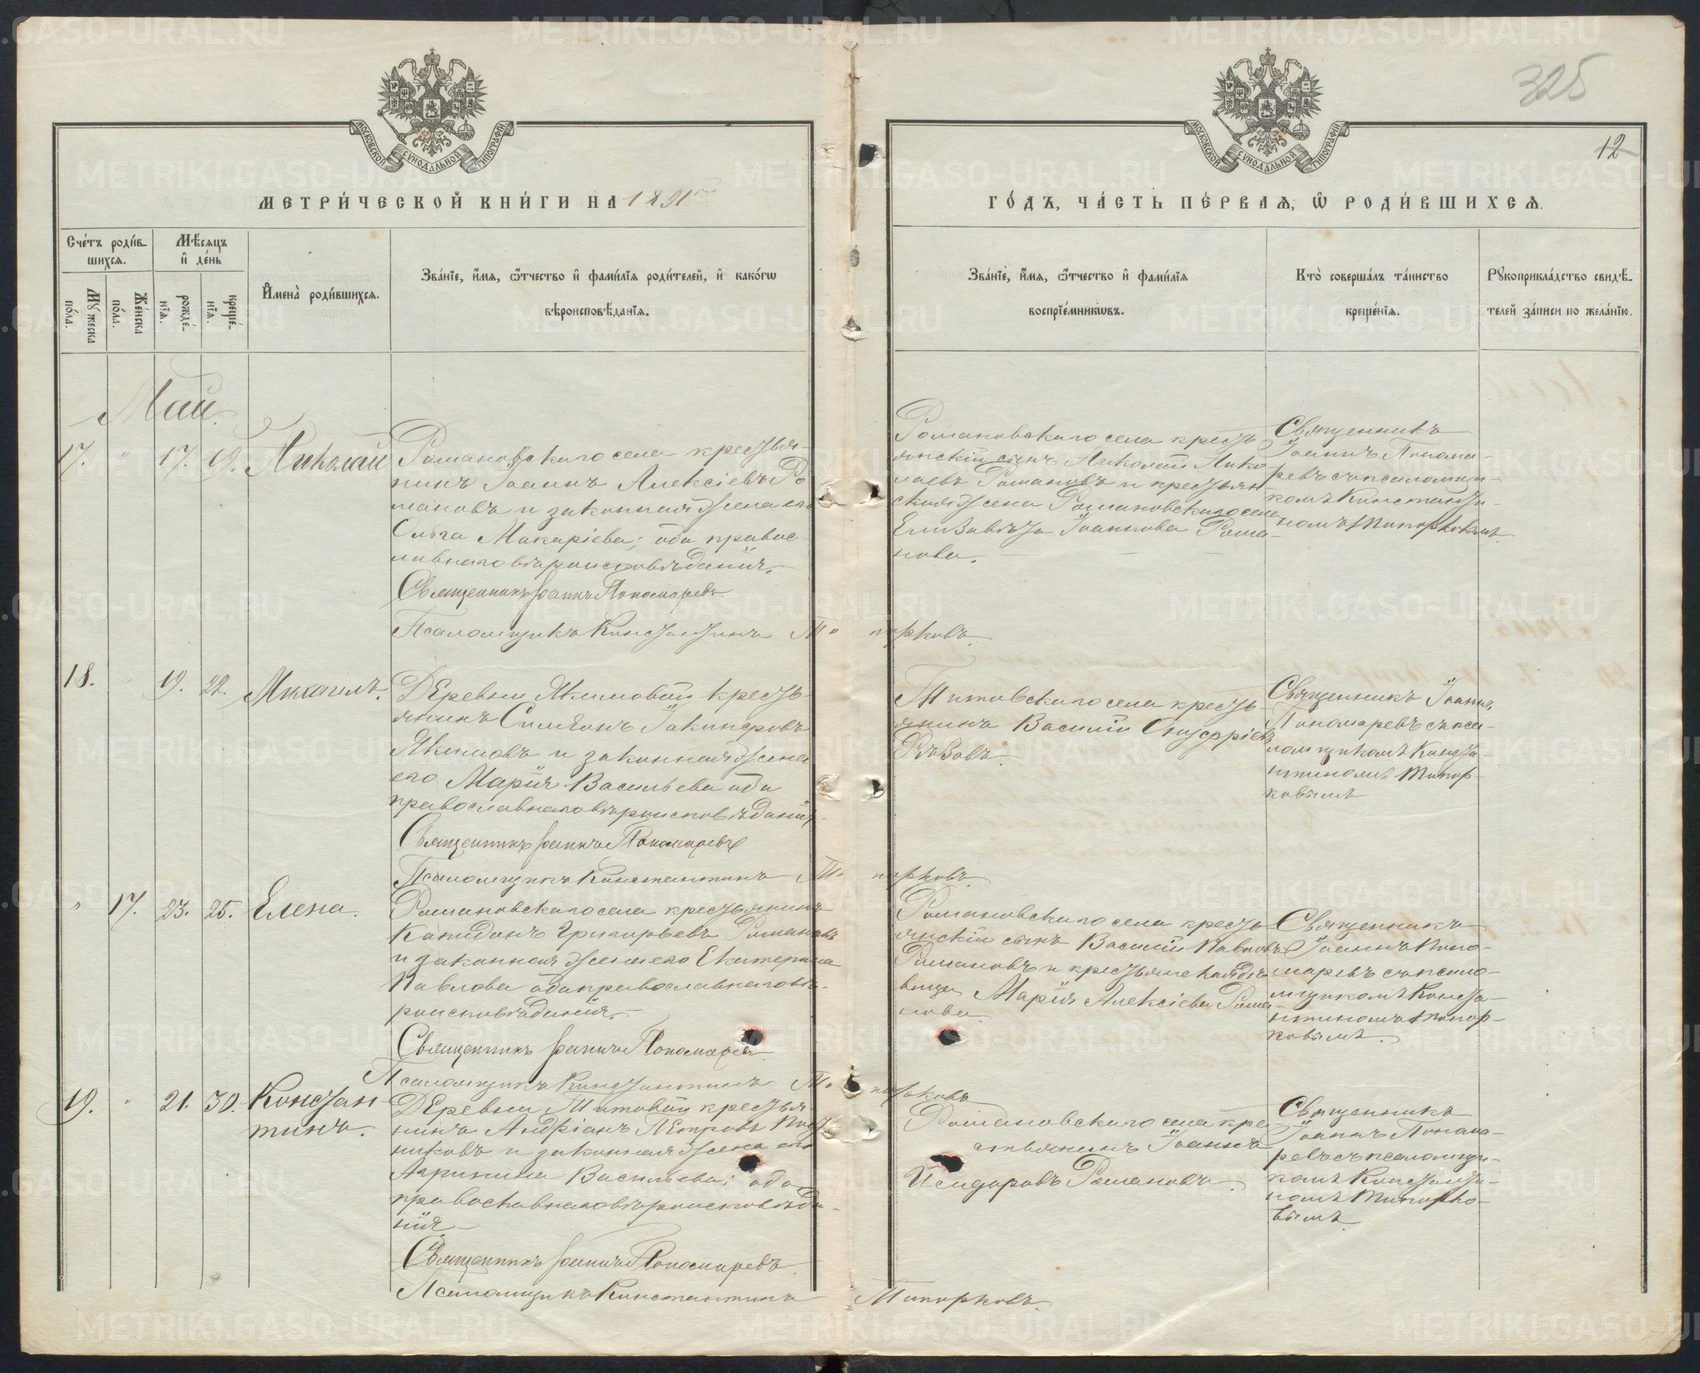 325
12
МОСКОВСКОЙ СѴНОДАЛЬНОЙ ТИПОГРАФІИ
МОСКОВСКОЙ СѴНОДАЛЬНОЙ ТИПОГРАФІИ
МЕТРИ́ЧЕСКОЙ КНИ́ГИ НА 1891
ГО́ДЪ, ЧА́СТЬ ПЕ́РВАЯ, Ѡ РОДИ́ВШИХСЯ.
Сче́тъ роди́в-
шихся.
Мꙋ́жеска
по́ла.
Же́нска
по́ла.
Мѣ́сяцъ
и҆ де́нь
рожде́-
нїя.
креще́-
нїя.
И҆мена̀ роди́вшихся.
Зва́нїе, и҆́мя, ѻ҆́тчество и҆ фами́лїя роди́телей, и҆ како́гѡ
вѣроисповѣ́данїя.
Зва́нїе, и҆́мя, ѻ҆́тчество и҆ фами́лїя
воспрїе́мникѡвъ.
Кто̀ соверша́лъ та́инство
креще́нїя.
Рꙋкоприкла́дство свидѣ́-
телей за́писи по жела́нїю.
Май.
17. " 17. 19. Николай
Романовскаго села крестья-
нинъ Іоаннъ Алексіевъ Ро
мановъ и законная жена его
Ольга Макаріева; оба правос
лавнаго вѣроисповѣданія.
Священникъ Іоаннъ Пономаревъ
Псаломщикъ Константинъ Топорковъ.
Романовскаго села кресть
янскій сынъ Николай Нико
лаевъ Романовъ и крестьян
ская жена Романовскаго села
Елизавета Іоаннова Рома-
нова.
Священникъ
Іоаннъ Понома-
ревъ съ псаломщи-
комъ Константи-
номъ Топорковымъ.
18. " 19. 22. Михаилъ.
Деревни Якимовой кресть-
янинъ Симеонъ Іакинфовъ
Якимовъ и законная жена
его Марія Васильева оба
православнаго вѣроисповѣданія.
Священникъ Іоаннъ Пономаревъ
Псаломщикъ Константинъ Топорковъ.
Титовскаго села кресть-
янинъ Василій
Священникъ Іоаннъ
Пономаревъ съ пса-
ломщикомъ Конста-
нтиномъ Топор-
ковымъ
" 17. 23. 25. Елена.
Романовскаго села крестьянинъ
Капидонъ Григорьевъ Романовъ
и законная жена его Екатерина
Павлова оба православнаго вѣ-
роисповѣданія.
Священникъ Іоаннъ Пономаревъ
Псаломщикъ Константинъ Топорковъ
Романовскаго села кресть
янскій сынъ Василій Павловъ
Романовъ и крестьянская дѣ
вица Марія Алексіева Рома-
нова.
Священникъ
Іоаннъ Поно-
маревъ съ псало-
мщикомъ Конста-
нтиномъ Топор-
ковымъ.
19. " 21. 30. Констан-
тинъ.
Деревни Титовой крестья-
нинъ Андріанъ Петровъ
никовъ и законная жена его
Агрипина Васильева; оба
православнаго вѣроисповѣда-
нія.
Священникъ Іоаннъ Пономаревъ.
Псаломщикъ Константинъ Топорковъ.
Романовскаго села кре-
стьянинъ Іоаннъ
Исидоровъ Романовъ.
Священникъ
Іоаннъ Понома-
ревъ съ псаломщи-
комъ Константи-
номъ Топорко-
вымъ.
METRIKI.GASO-URAL.RU